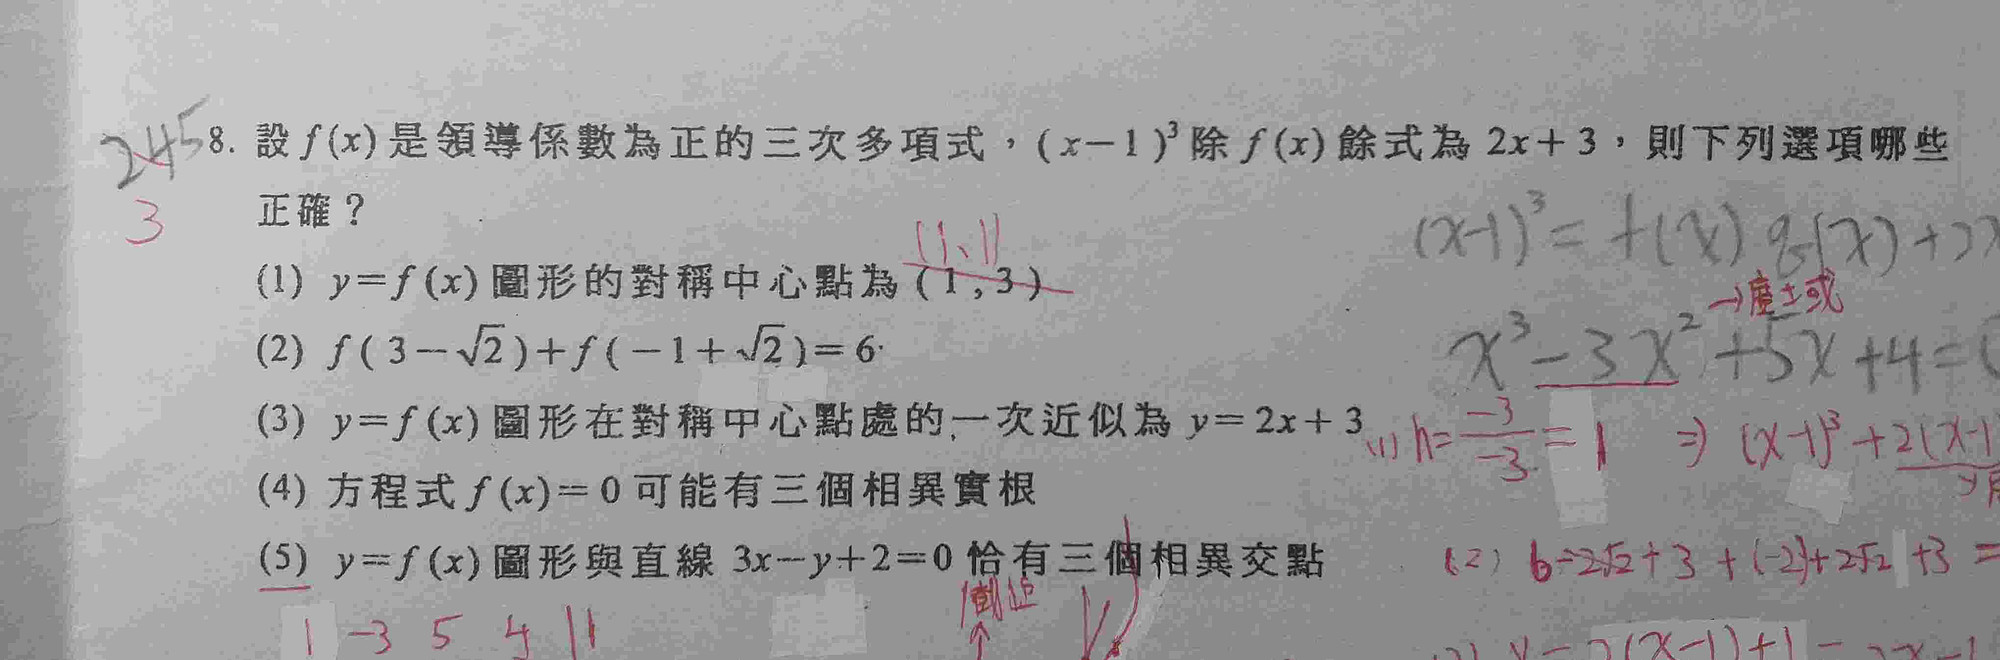 245
3
8. 設 f(x) 是領導係數為正的三次多項式，(x－1)³ 除 f(x) 餘式為 2x＋3，則下列選項哪些
正確？
(1,1)
(x-1)³ = f(x) q(x) +
(1) y＝f(x) 圖形的對稱中心點為 (1,3)
(2) f(3－√2)＋f(－1＋√2)＝6
x³ - 3x² + 5x + 4 =
(3) y＝f(x) 圖形在對稱中心點處的一次近似為 y＝2x＋3
(1) h = -3/-3 = 1 ⇒ (x-1)³ + 2(x-1)
(4) 方程式 f(x)＝0 可能有三個相異實根
(5) y＝f(x) 圖形與直線 3x－y＋2＝0 恰有三個相異交點
(2) 6-2√2+3+(-2)+2√2+3=
1 -3 5 4 | 1